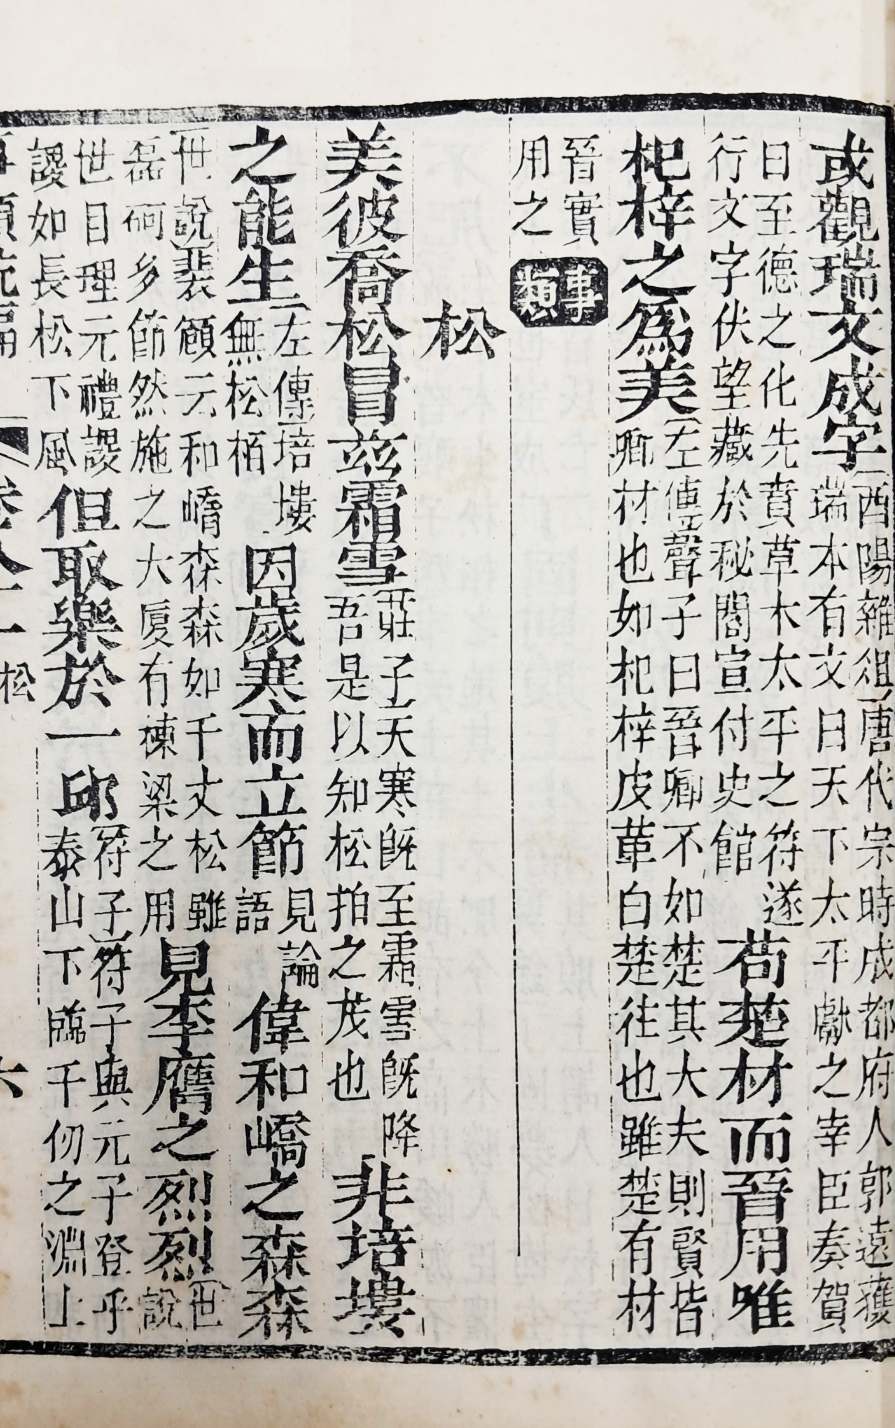 或觀瑞文成字［酉陽雜俎］唐代宗時成都府人郭遠獲
瑞本有文曰天下太平獻之幸臣奏賀
曰至德之化先賁草木太平之符遂
行文字伏望藏於秘閣宣付史館苟楚材而晉用唯
杞梓之爲美［左傳］聲子曰晉卿不如楚其大夫則賢皆
卿材也如杞梓皮革白楚往也雖楚有材
晉實
用之
事類
松
美彼喬松冒茲霜雪［莊子］天寒旣至霜雪旣降
吾是以知松柏之茂也非培塿
之能生［左傳］培塿
無松栢因歲寒而立節見論
語偉和嶠之森森
［世說］裴顧云和嶠森森如千丈松雖
磊砢多節然施之大厦有棟梁之用見李膺之烈烈［世
說
世目理元禮謖
謖如長松下風但取樂於一邱［符子］符子與元子登乎
泰山下臨千仞之淵上
松
六